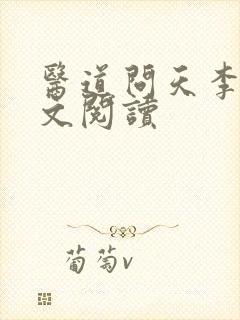 醫道問天李
文閱讀
葡萄v